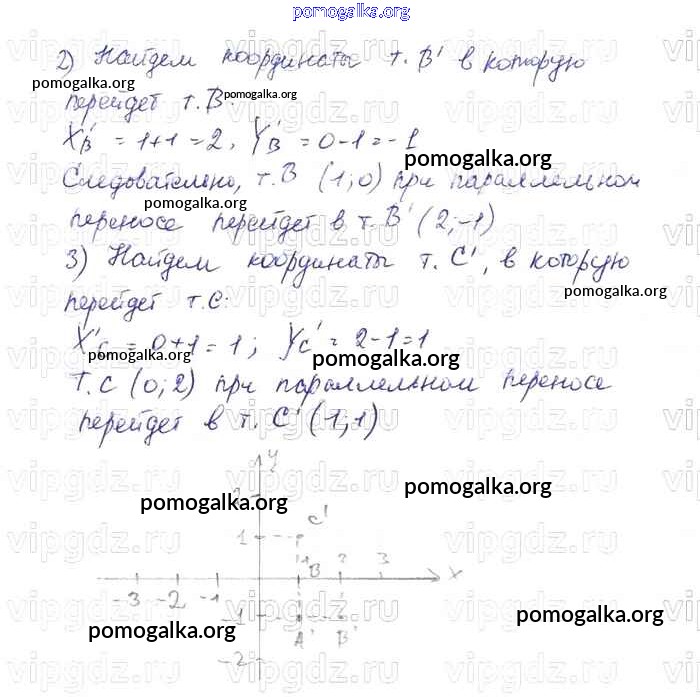 pomogalka.org
2) Найдем координаты т. B' в которую
pomogalka.org
перейдет т. B:
pomogalka.org
X'B = 1+1 = 2, Y'B = 0-1 = -1
pomogalka.org
Следовательно, т. B (1; 0) при параллельном
pomogalka.org
переносе перейдет в т. B' (2; -1)
3) Найдем координаты т. C', в которую
pomogalka.org
перейдет т. C:
X'c = 0+1 = 1; Yc' = 2-1 = 1
pomogalka.org
Т. C (0; 2) при параллельном переносе
pomogalka.org
перейдет в т. C' (1; 1)
y
pomogalka.org pomogalka.org
2
C'
1
1 B 2 3 x
-3 -2 -1
-1
pomogalka.org
A' B'
pomogalka.org
-2
vipgdz.ru